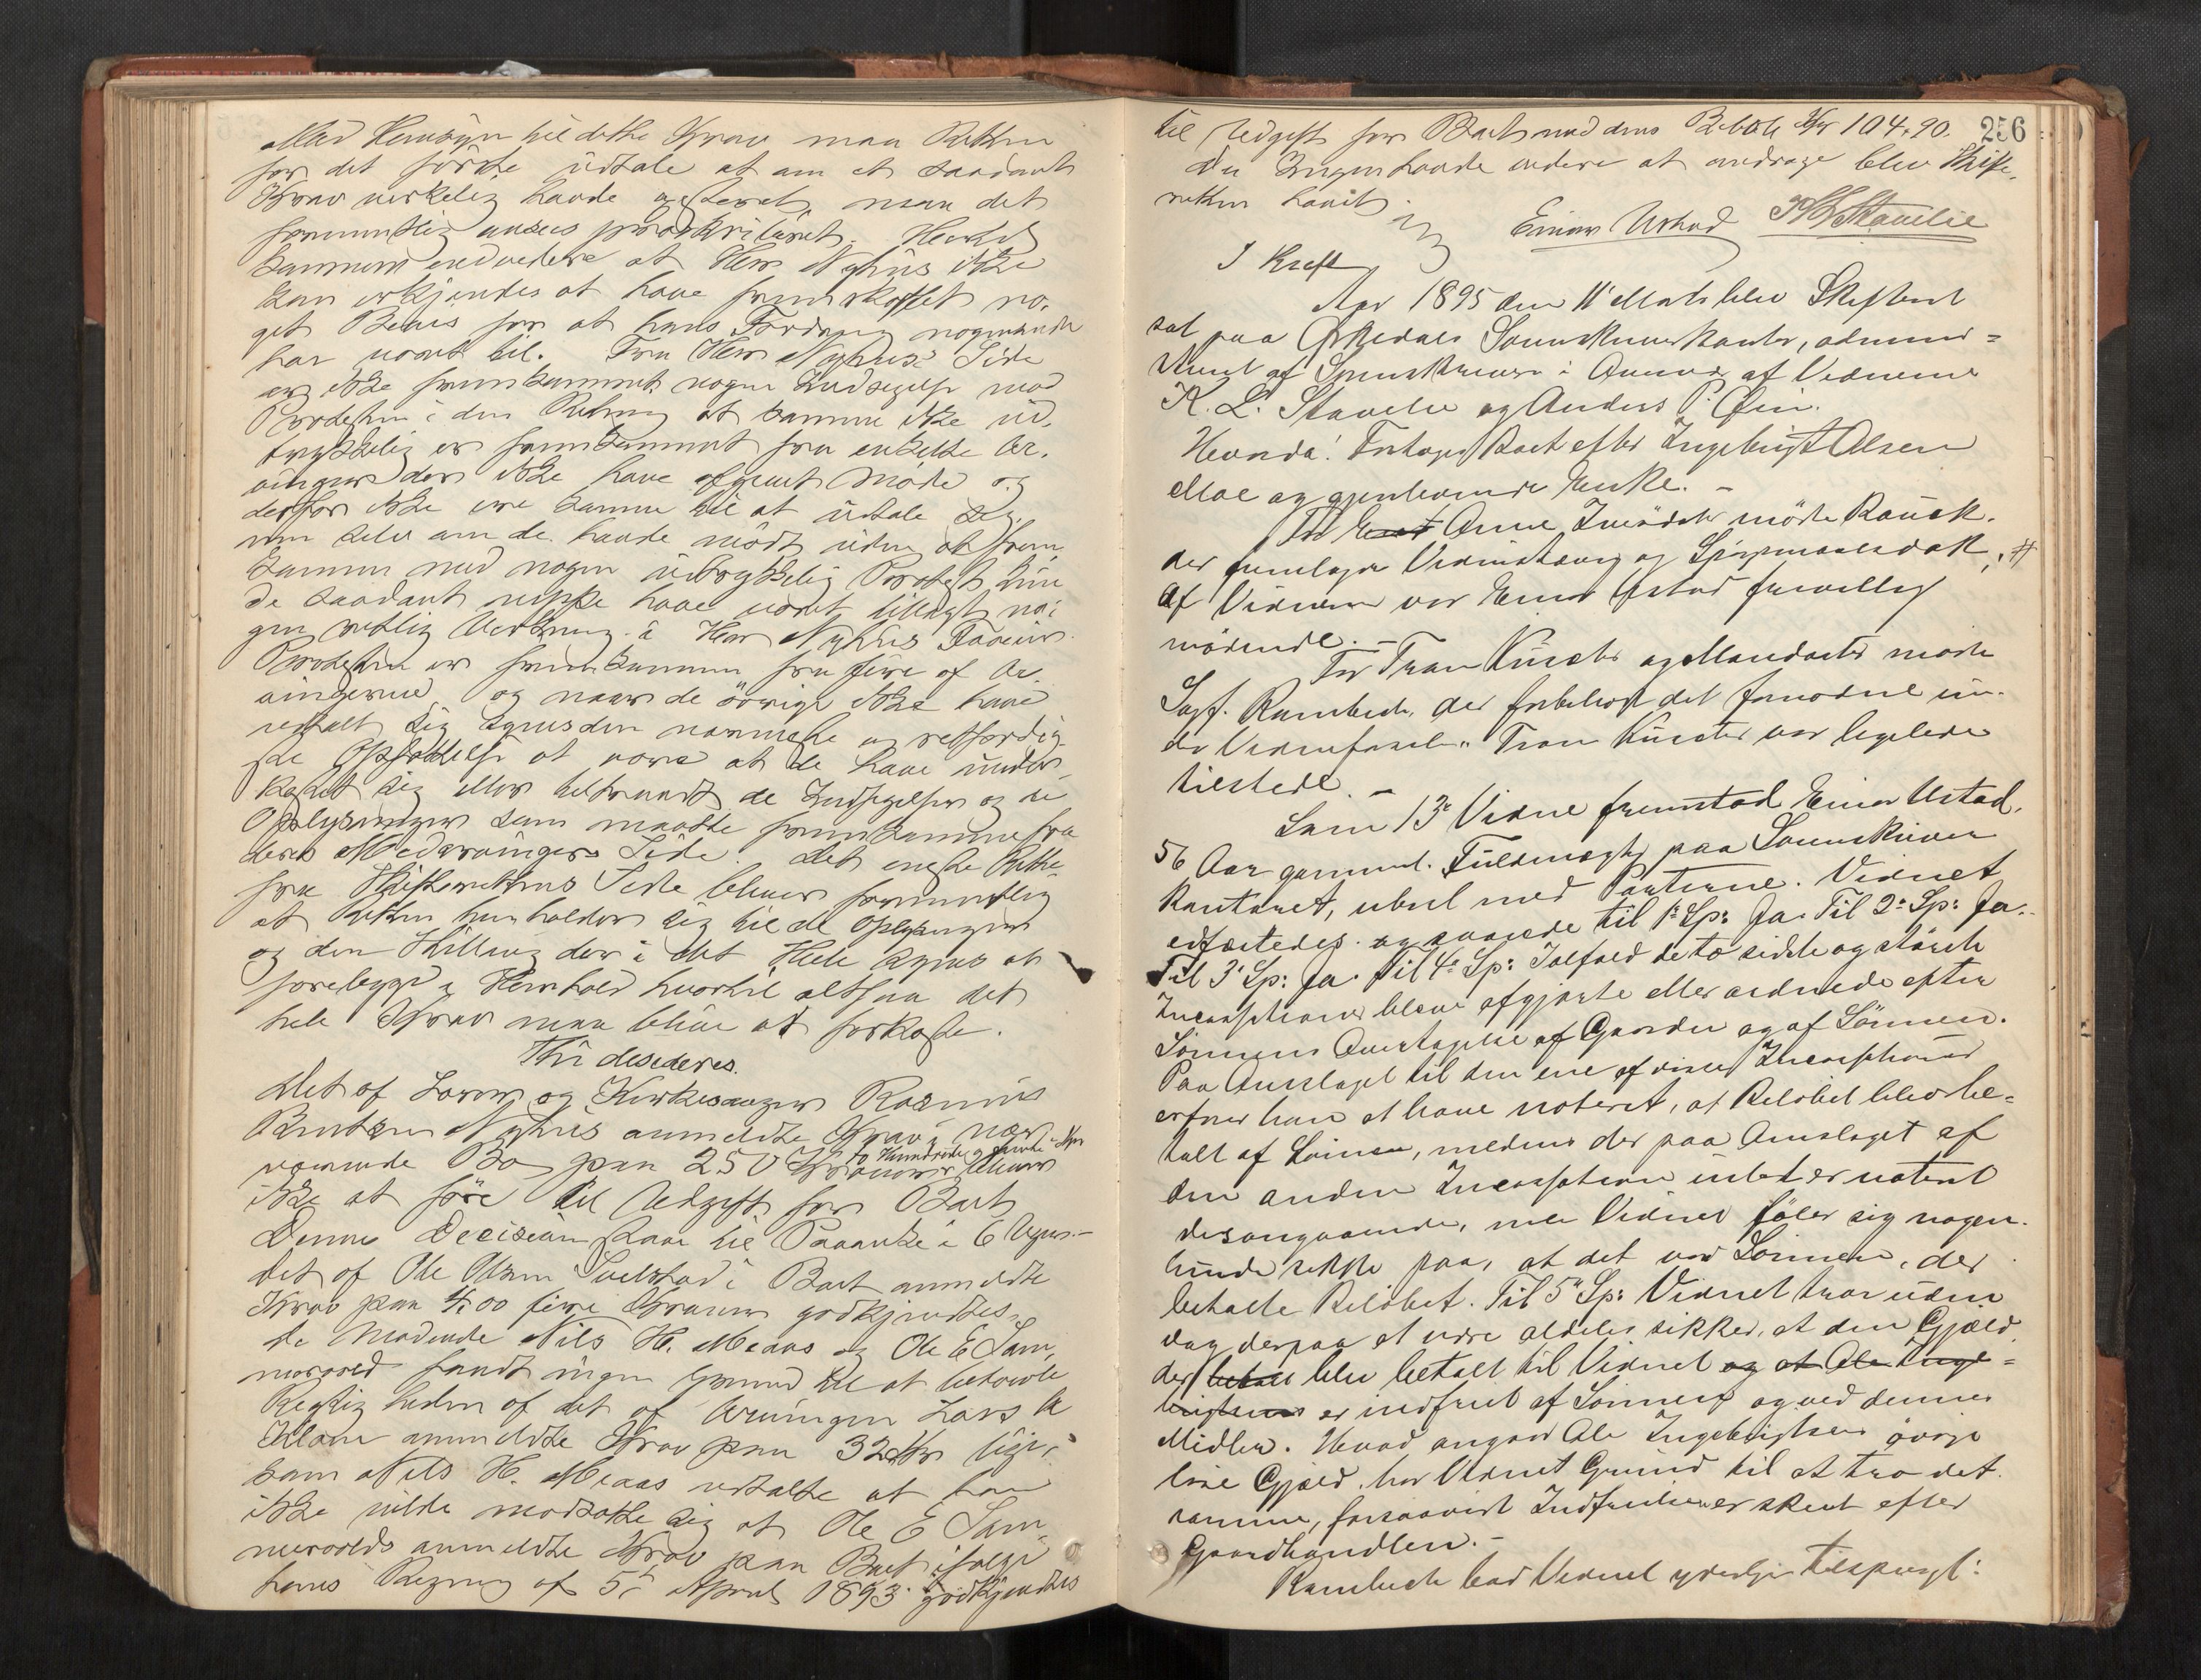 Med Hensyn til dette Krav maa Retten
for det første udtale at om et saadant
Krav virkelig havde existeret, maa det
formentlig ansees præskriberet. Hertil
kommer endvidere at Herr Nyhus ikke
kan erkjendes at have fremskaffet no-
get Bevis for at hans Fordring nogensinde
har været til. Fra Herr Nyhus' Side
er ikke fremkommet nogen Indsigelse mod
Protesten i den Retning at samme ikke ud-
trykkelig er fremkommet fra enkelte Ar-
vinger der ikke have afgivet Møde og
derfor ikke ere komne til at udtale sig.
men selv om de havde mødt uden at frem-
komme med nogen udtrykkelig Protest kun-
de saadant neppe have været tillagt no-
gen retslig Virkning i Herr Nyhus Favør.
Protesten er fremkommen fra fire af Ar-
vingerne og naar de øvrige ikke have
udtalt sig synes den nærmeste og retfærdig-
ste Opfattelse at være at de have under-
kastet sig eller tiltraadt de Indsigelser og de
Oplysninger som maatte fremkomme fra
deres Medarvingers Side. Det eneste Rette
fra Skifterettens Side bliver formentlig
at Retten henholder sig til de Oplysninger
og den Stilling der i det Hele synes at
forelygge i Henhold hvortil altsaa det
hele Krav maa blive at forkaste.
Thi desideres.
Det af Lærer og Kirkesanger Rasmus
Bentsen Nyhus anmeldte Krav i nær-
værende Bo paa 250 Kroner to Hundrede og femti Kr bliver
ikke at føre til Udgift for Boet
Denne Decision staar til Paaanke i 6 Uger.-
Det af Ole Olsen Svelstad i Boet anmeldte
Krav paa 4,00 fire Kroner godkjendtes.
De Mødende Nils H. Meaas og Ole E Sam-
mervold fandt ingen Grund til at betvivle
Rigtigheden af det af Arvingen Lars A
Kløve anmeldte Krav paa 32 Kr lige-
som Nils H. Meaas udtalte at han
ikke vilde modsætte sig at Ole E Sam-
mervolds anmeldte Krav paa Boet ifølge
hans Regning af 5te April 1893 godkjendtes
til Udgift for Boet med dens Beløb Kr 104,90. 256
Da Ingen havde videre at andrage blev Skifte-
retten hævet.
Einar Ustad K L Stavelie
I Kraft
Aar 1895 den 11 Marts blev Skifteret
sat paa Orkedals Sorenskriverkontor, admini=
streret af Sorenskriveren i Overvær af Vidnerne
K. L. Stavelie og Anders P. Øien.
Hvorda: Foretoges Boet efter Ingebrigt Olsen
Moe og gjenlevende Enke. -
For Anne Ivarsdatter mødte Rauck.
der fremlagde Vidnestævning og Spørgsmaalsdok, #
Af Vidnerne var Einar Ustad frivillig
mødende. -
For Fran Kurator og Mandatar mødte
Sagf. Rambech, der forbeholdt det fornødne un-
der Vidneførselen. Fran Kurator var ligeledes
tilstede. -
Som 13de Vidne fremstod Einar Ustad,
56 Aar gammel. Fuldmægtig paa Sorenskriver
kontoret, ubesl med Parterne. Vidnet
edfæstedes. og svarede til 1ste Sp: Ja. Til 2det Sp: Ja.
Til 3die Sp: Ja. Til 4de Sp: Ialfald de to sidste og største
Incassationer bleve afgjorte eller ordnede efter
Sønnens Overtagelse af Gaarden og af Sønnen.
Paa Omslaget til den ene af disse Incassationer
erfarer han at have noteret, at Beløbet blev be=
talt af Sønnen, medens der paa Omslaget af
den anden Incassation intet er noteret
desangaaende, men Vidnet føler sig nogen-
lunde sikker paa, at det var Sønnen, der
betalte Beløbet. Til 5te Sp: Vidnet tror uden
dog derpaa at være aldeles sikker, at den Gjæld,
der betalt blev betalt til Vidnet og at Ole Inge=
brigtsen er indfriet af Sønnen og ved dennes
Midler. Hvad angaar Ole Ingebrigtsens øvrige
lose Gjæld, har Vidnet Grund til at tro det
samme, forsaavidt Indfrielsen er skeet efter
Gaardhandelen. -
Rambech bad Vidnet yderligere tilspurgt: